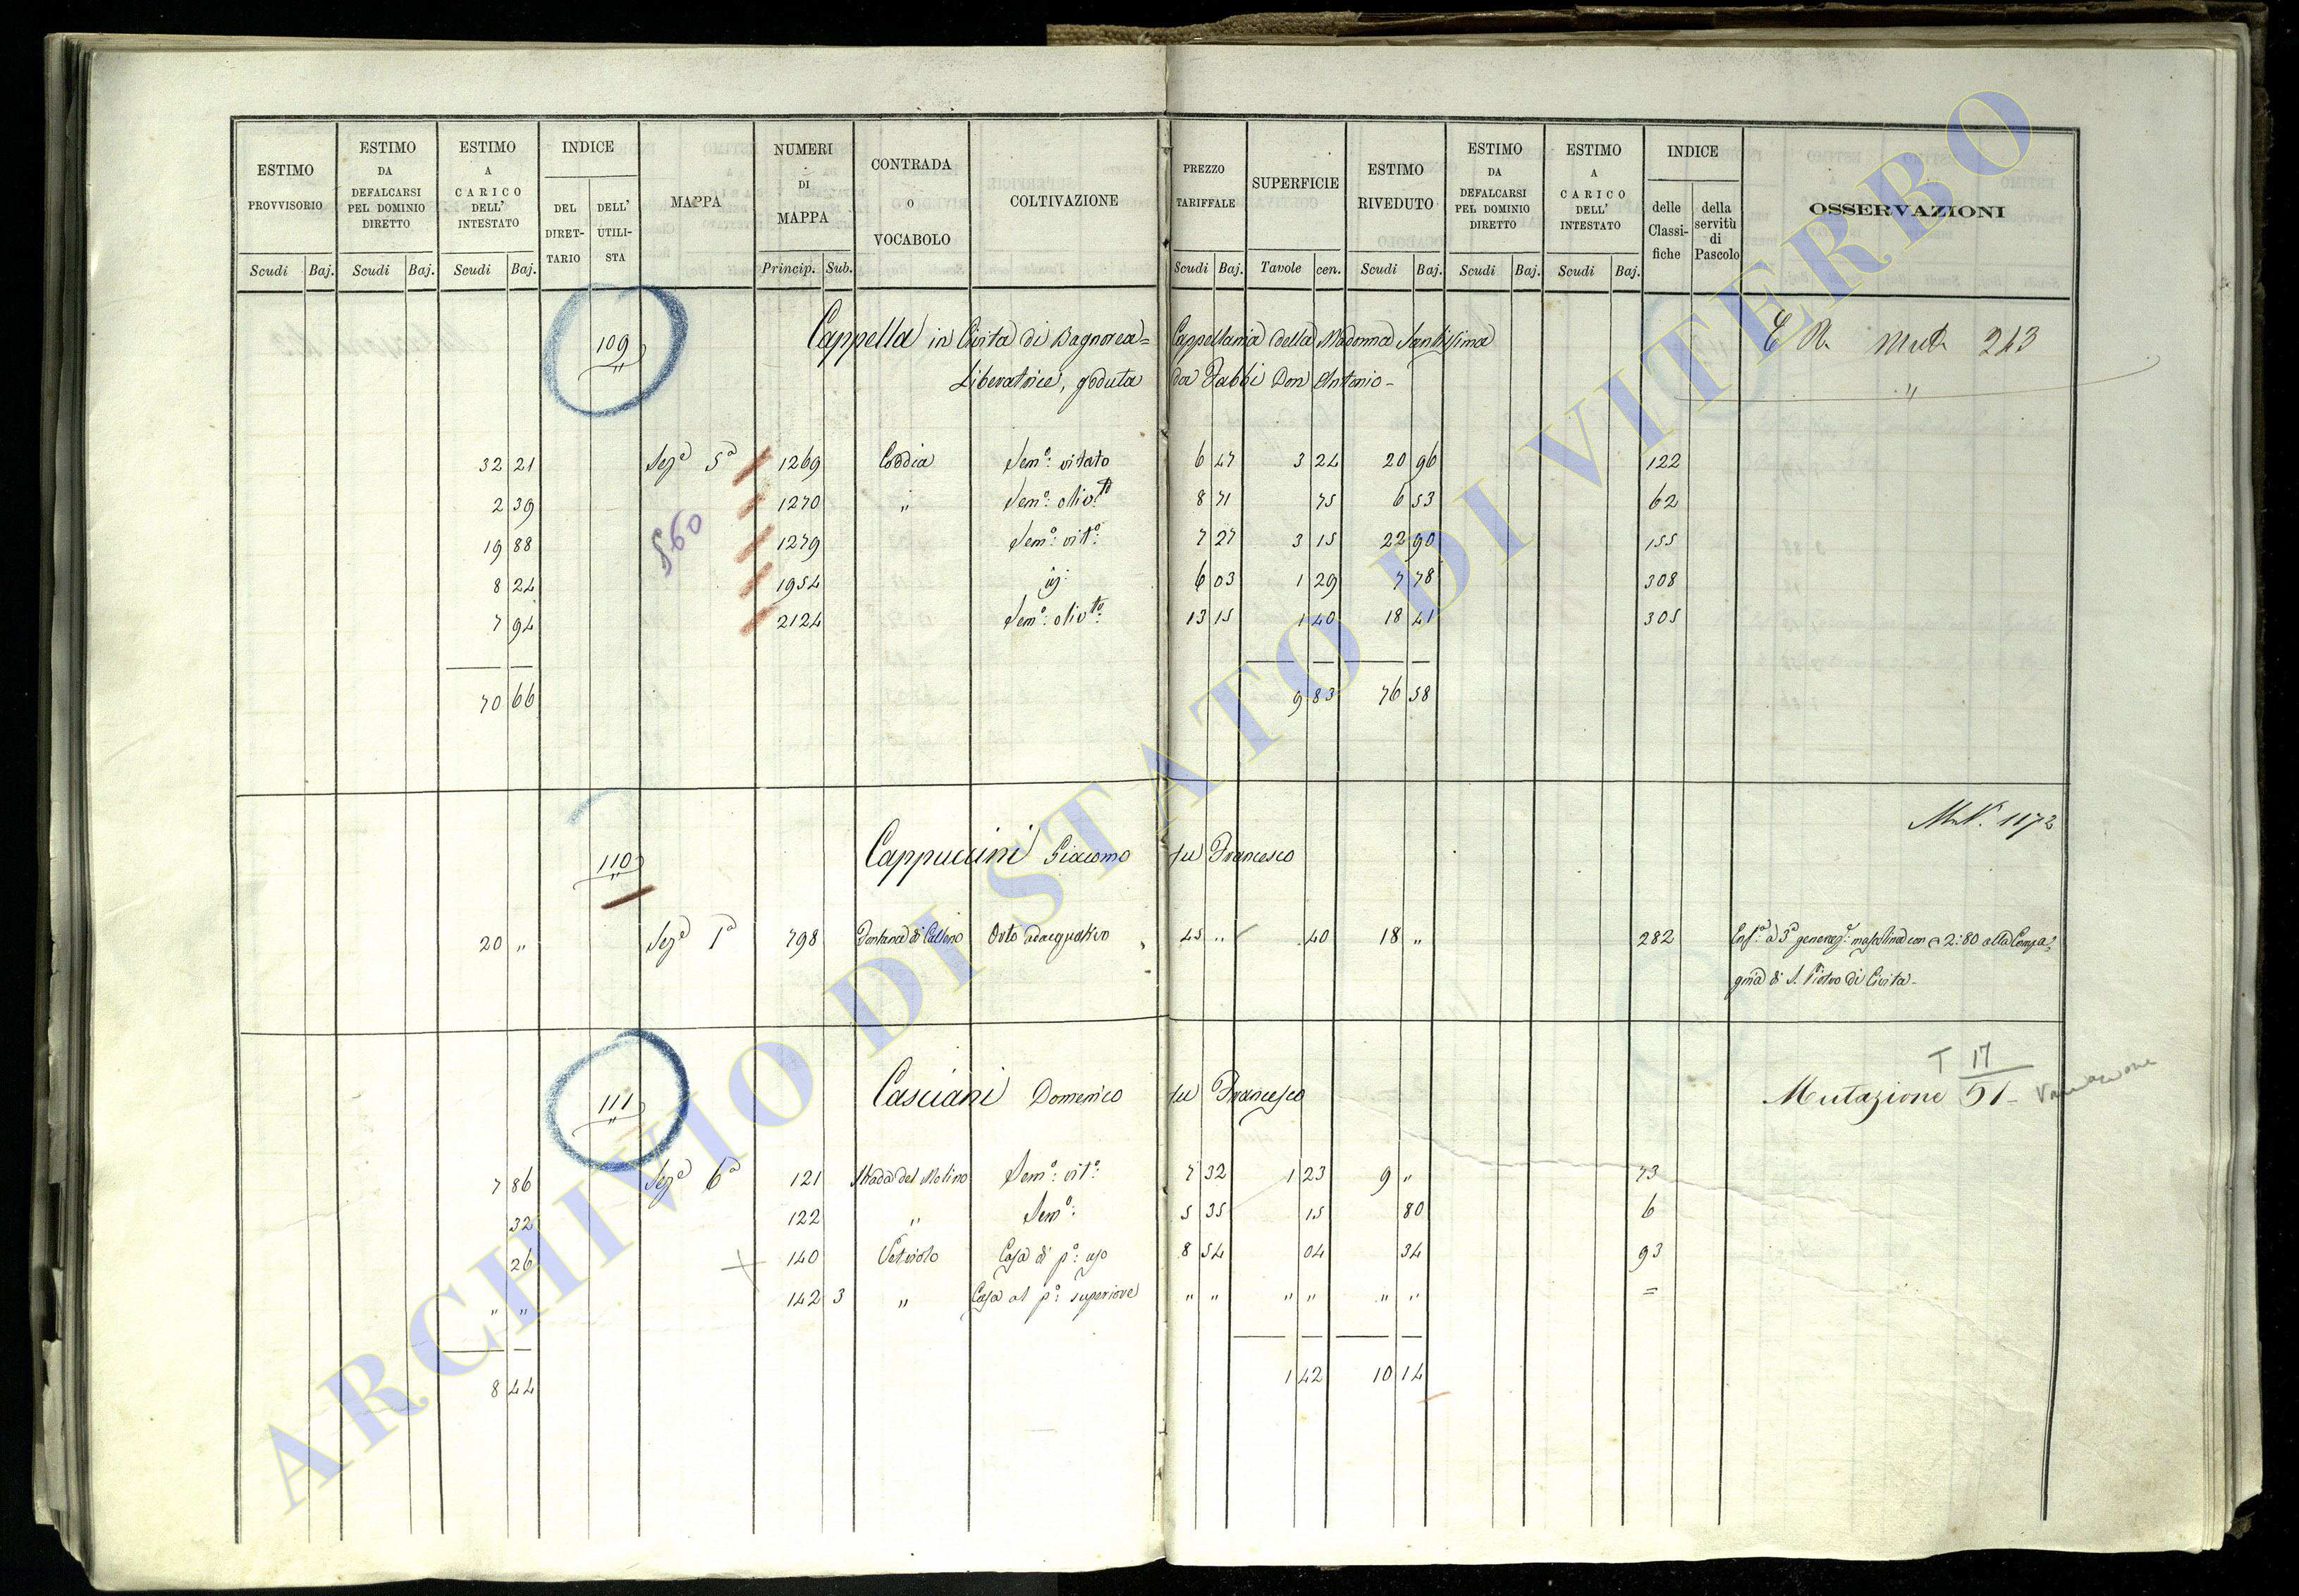 ESTIMO PROVVISORIO ESTIMO DA DEFALCARSI PEL DOMINIO DIRETTO ESTIMO A CARICO DELL' INTESTATO INDICE DEL DIRET-TARIO DELL' UTILI-STA MAPPA NUMERI DI MAPPA CONTRADA O VOCABOLO COLTIVAZIONE PREZZO TARIFFALE SUPERFICIE ESTIMO RIVEDUTO ESTIMO DA DEFALCARSI PEL DOMINIO DIRETTO ESTIMO A CARICO DELL' INTESTATO INDICE delle Classi-fiche della servitù di Pascolo OSSERVAZIONI
Scudi Baj. Scudi Baj. Scudi Baj. Princip. Sub. Scudi Baj. Tavole cen. Scudi Baj. Scudi Baj. Scudi Baj.
109 Cappella in Civita di Bagnorea = Cappellania della Madonna Santissima
Mut. 243
Liberatrice, goduta da Fabbi Don Antonio -
32 21 Sez.e 5a 1269 Sem.o: vitato 6 47 3 24 20 96 122
2 39 1270 " Sem.o: oliv.to 8 71 75 6 53 62
560
19 88 1279 Sem.o: vit.o: 7 27 3 15 22 90 155
8 24 1954 6 03 1 29 7 78 308
7 94 2124 Sem.o: oliv.to: 13 15 1 40 18 41 305
70 66 9 83 76 58
1172
110 Cappuccini Giacomo fu Francesco
20 " Sez.e 1a 798 Fontana di Orto adacquativo 45 " 40 18 " 282 Enf.o a 3a generaz.e: mascolina con 2:80 alla Compa=
gnia di S. Pietro di Civita -
T 17
111 Casciani Domenico fu Francesco Mutazione 51 - Variazione
7 86 Sez.e 6a 121 Strada del Molino Sem.o: vit.o: 7 32 1 23 9 " 73
32 122 " Sem.o: 5 35 15 80 6
26 140 Casa di p.o: uso 8 54 04 34 93
" " 142 3 " Casa al p.o: superiore " " " " " " =
8 44 1 42 10 14
ARCHIVIO DI STATO DI VITERBO